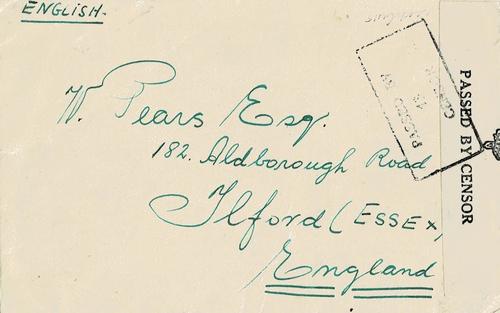 ENGLISH.
W. Pears Esq.
182. Aldborough Road
Ilford (ESSEX,
England
PASSED BY
CENSOR
PASSED BY CENSOR